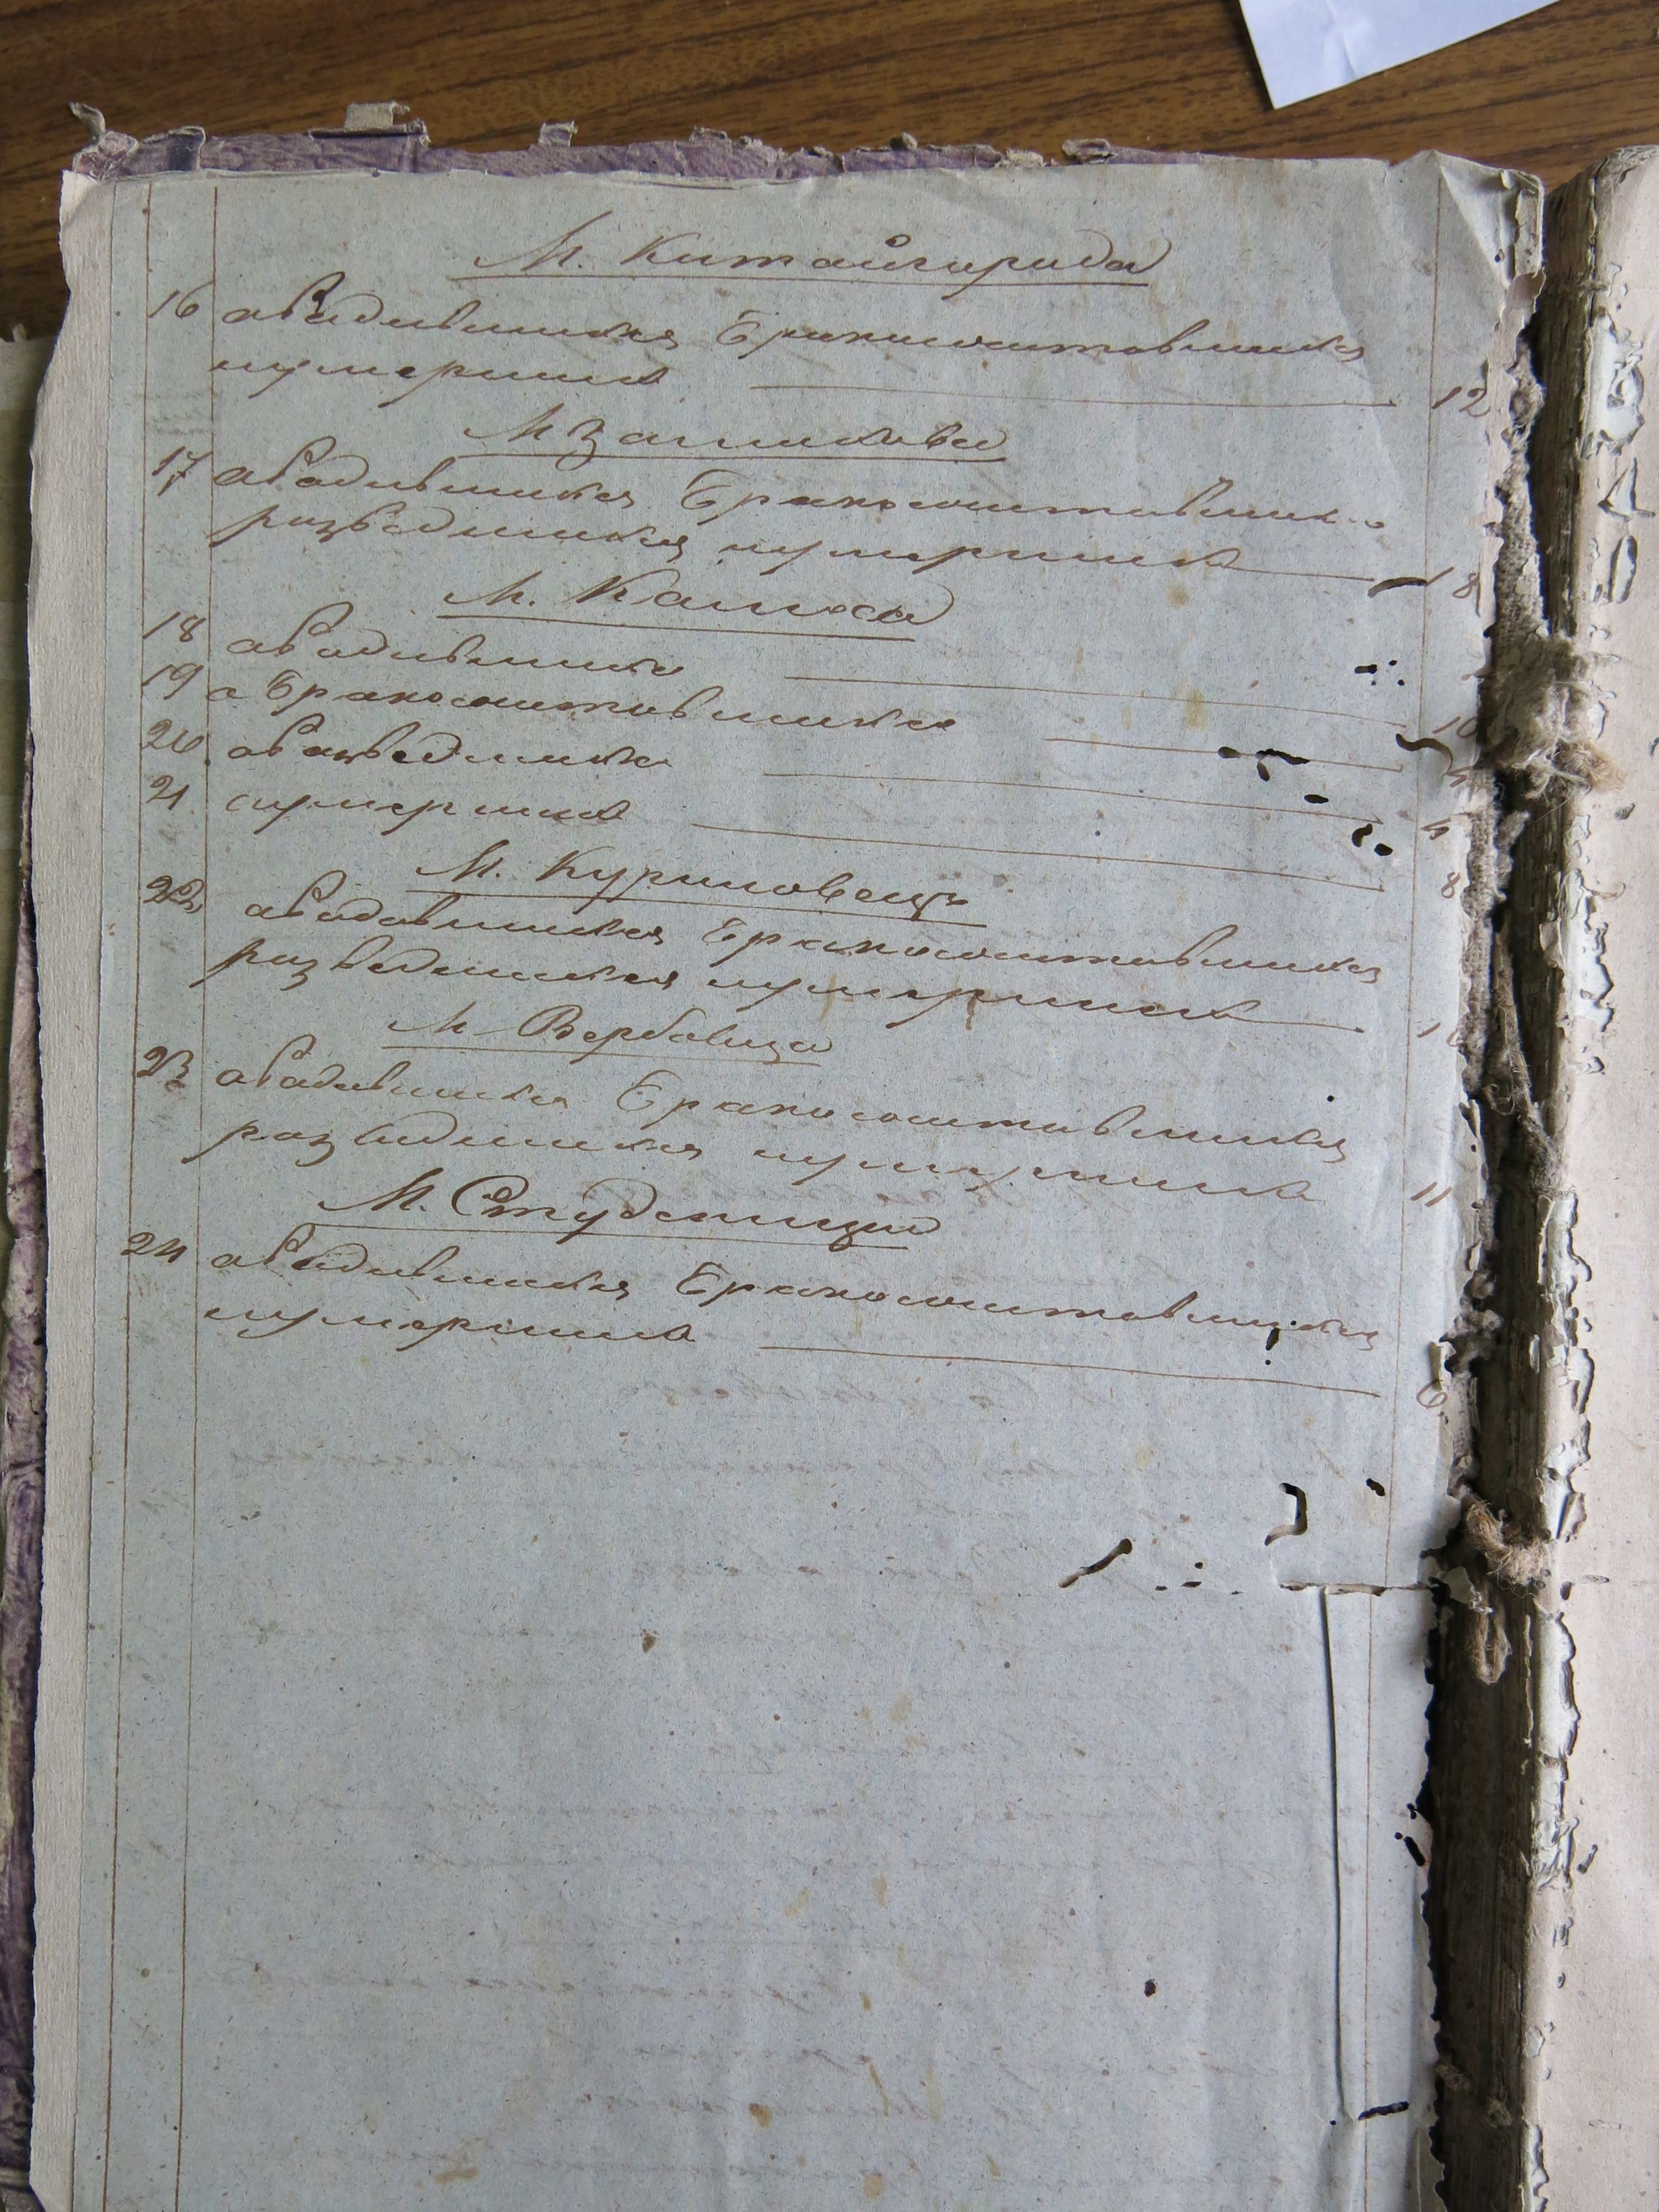 М. Китайгорода
16 оРодившихся Бракосочетавшихся
иумершихъ 12
М Заміхова
17 оРодившихся Бракосочетавших
разведшихся иумершихъ 18
М. Калюса
18 оРодившихся 10
19 о Бракосочетавшихся
20 оРазведшихся 4
21 оумершихъ 8
М. Куриловецъ
22 оРодившихся Бракосочетавшихся
разведшихся иумершихъ
М Вербовца
23 оРодившихся Бракосочетавшихся
разведшихся иумершихъ 11
М. Студеницы
24 оРодившихся Бракосочетавшихся
иумершихъ 6